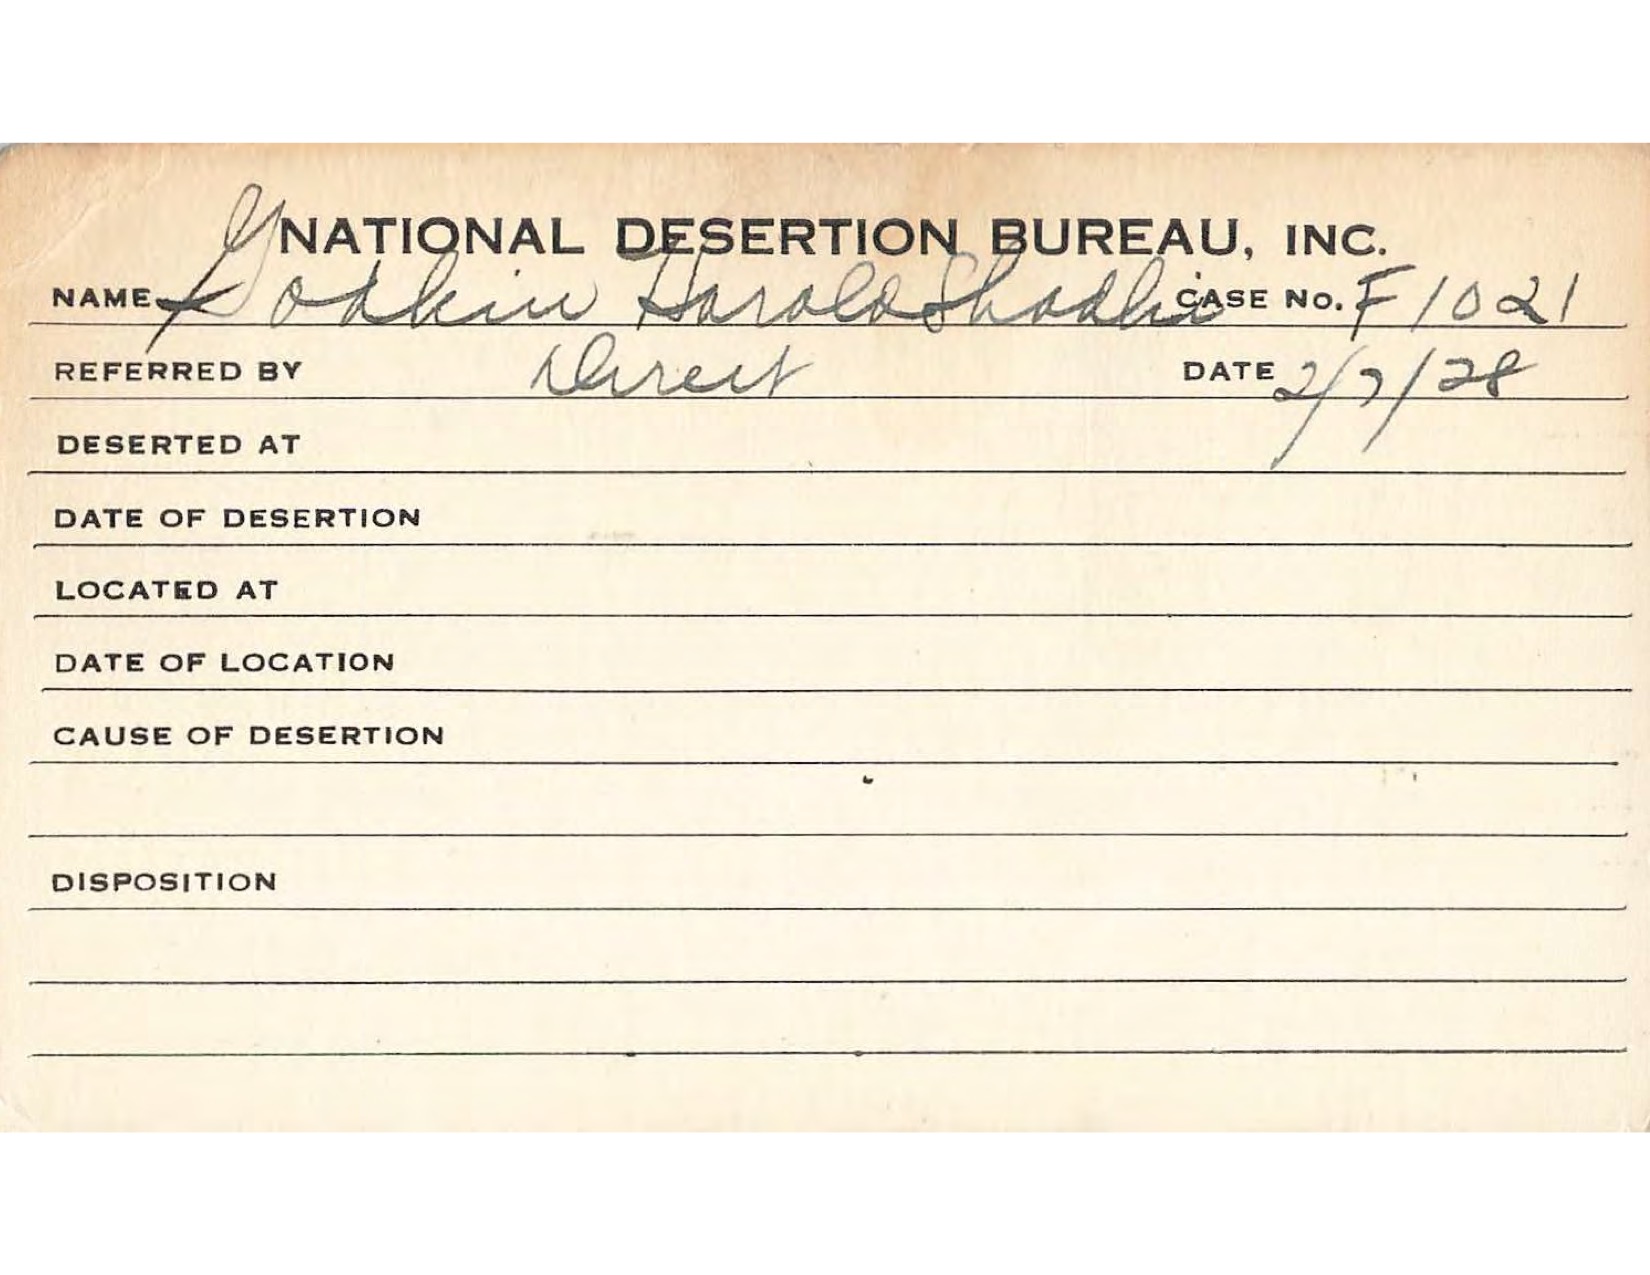 NATIONAL DESERTION BUREAU, INC.
NAME Godkin Harold CASE No. F1021
REFERRED BY Direct DATE 2/7/28
DESERTED AT
DATE OF DESERTION
LOCATED AT
DATE OF LOCATION
CAUSE OF DESERTION
DISPOSITION